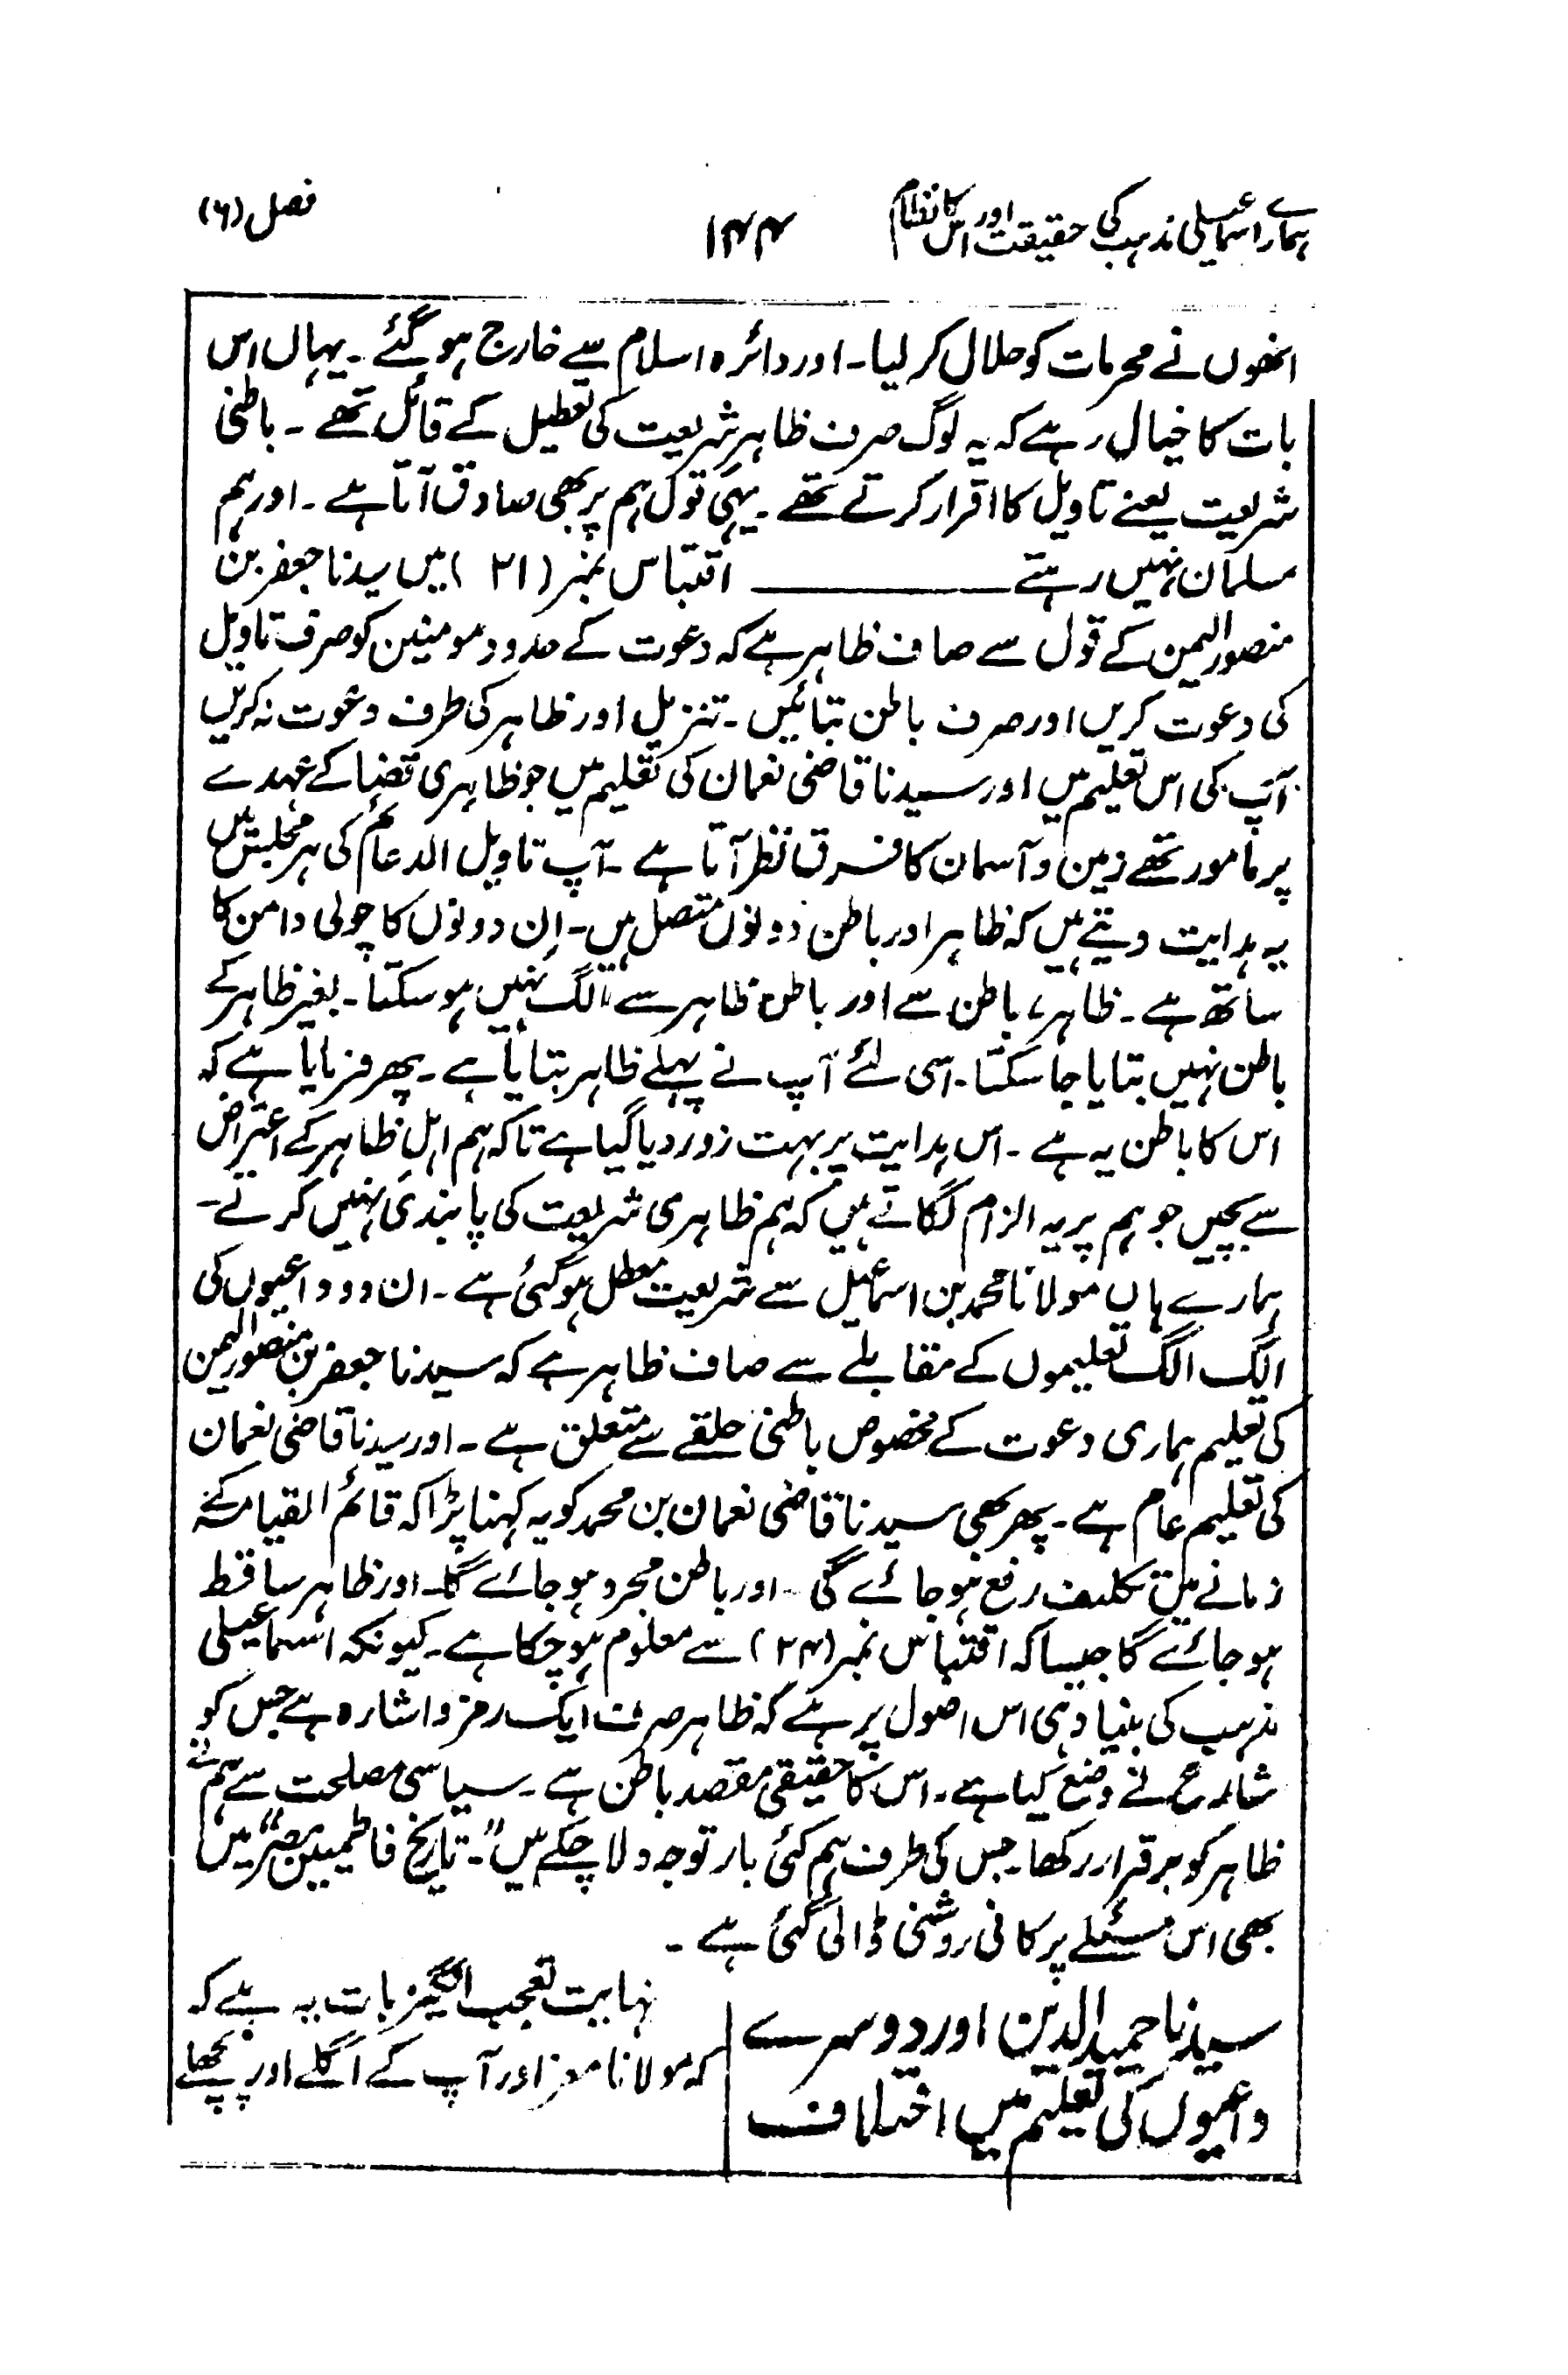 ہمارے اسماعیلی مذہب کی حقیقت اور اس کا نظام ۱۴۴ فصل (۶)
انھوں نے محرمات کو حلال کر لیا۔ اور دائرہ اسلام سے خارج ہو گئے۔ یہاں اس
بات کا خیال رہے کہ یہ لوگ صرف ظاہر شریعت کی تعطیل کے قائل تھے۔ باطنی
شریعت یعنے تاویل کا اقرار کرتے تھے۔ یہی قول ہم پر بھی صادق آتا ہے۔ اور ہم
مسلمان نہیں رہتے ــــــــــ اقتباس نمبر (۲۱) میں سیدنا جعفر بن
منصور الیمن کے قول سے صاف ظاہر ہے کہ دعوت کے حدود مومنین کو صرف تاویل
کی دعوت کریں اور صرف باطن بتائیں۔ تنزیل اور ظاہر کی طرف دعوت نہ کریں
آپ کی اس تعلیم میں اور سیدنا قاضی نعمان کی تعلیم میں جو ظاہری قضا کے عہدے
پر مامور تھے زمین و آسمان کا فرق نظر آتا ہے۔ آپ تاویل الدعائم کی ہر مجلس میں
یہ ہدایت دیتے ہیں کہ ظاہر اور باطن دونوں متصل ہیں۔ اِن دونوں کا چولی دامن کا
ساتھ ہے۔ ظاہر، باطن سے اور باطن ظاہر سے الگ نہیں ہو سکتا۔ بغیر ظاہر کے
باطن نہیں بتایا جا سکتا۔ اسی لئے آپ نے پہلے ظاہر بتایا ہے۔ پھر فرمایا ہے کہ
اس کا باطن یہ ہے۔ اس ہدایت پر بہت زور دیا گیا ہے تاکہ ہم اہلِ ظاہر کے اعتراض
سے بچیں جو ہم پر یہ الزام لگاتے ہیں کہ ہم ظاہری شریعت کی پابندی نہیں کرتے۔
ہمارے ہاں مولانا محمد بن اسماعیل سے شریعت معطل ہو گئی ہے۔ ان دو داعیوں کی
الگ الگ تعلیموں کے مقابلے سے صاف ظاہر ہے کہ سیدنا جعفر بن منصور الیمن
کی تعلیم ہماری دعوت کے مخصوص باطنی حلقے سے متعلق ہے۔ اور سیدنا قاضی نعمان
کی تعلیم عام ہے۔ پھر بھی سیدنا قاضی نعمان بن محمد کو یہ کہنا پڑا کہ قائم القیامۃ کے
زمانے میں تکلیف رفع ہو جائے گی۔ اور باطن مجرد ہو جائے گا۔ اور ظاہر ساقط
ہو جائے گا جیسا کہ اقتباس نمبر (۲۴) سے معلوم ہو چکا ہے۔ کیونکہ اسماعیلی
مذہب کی بنیاد ہی اس اصول پر ہے کہ ظاہر صرف ایک رمز و اشارہ ہے جس کو
شارع نے وضع کیا ہے۔ اس کا حقیقی مقصد باطن ہے۔ سیاسی مصلحت سے ہم نے
ظاہر کو برقرار رکھا۔ جس کی طرف ہم کئی بار توجہ دلا چکے ہیں۔ "تاریخ فاطمیین مصر" میں
بھی اس مسئلے پر کافی روشنی ڈالی گئی ہے۔
سیدنا حمید الدین اور دوسرے
داعیوں کی تعلیم میں اختلاف
نہایت تعجب انگیز بات یہ ہے کہ
کہ مولانا معز اور آپ کے اگلے اور پچھلے